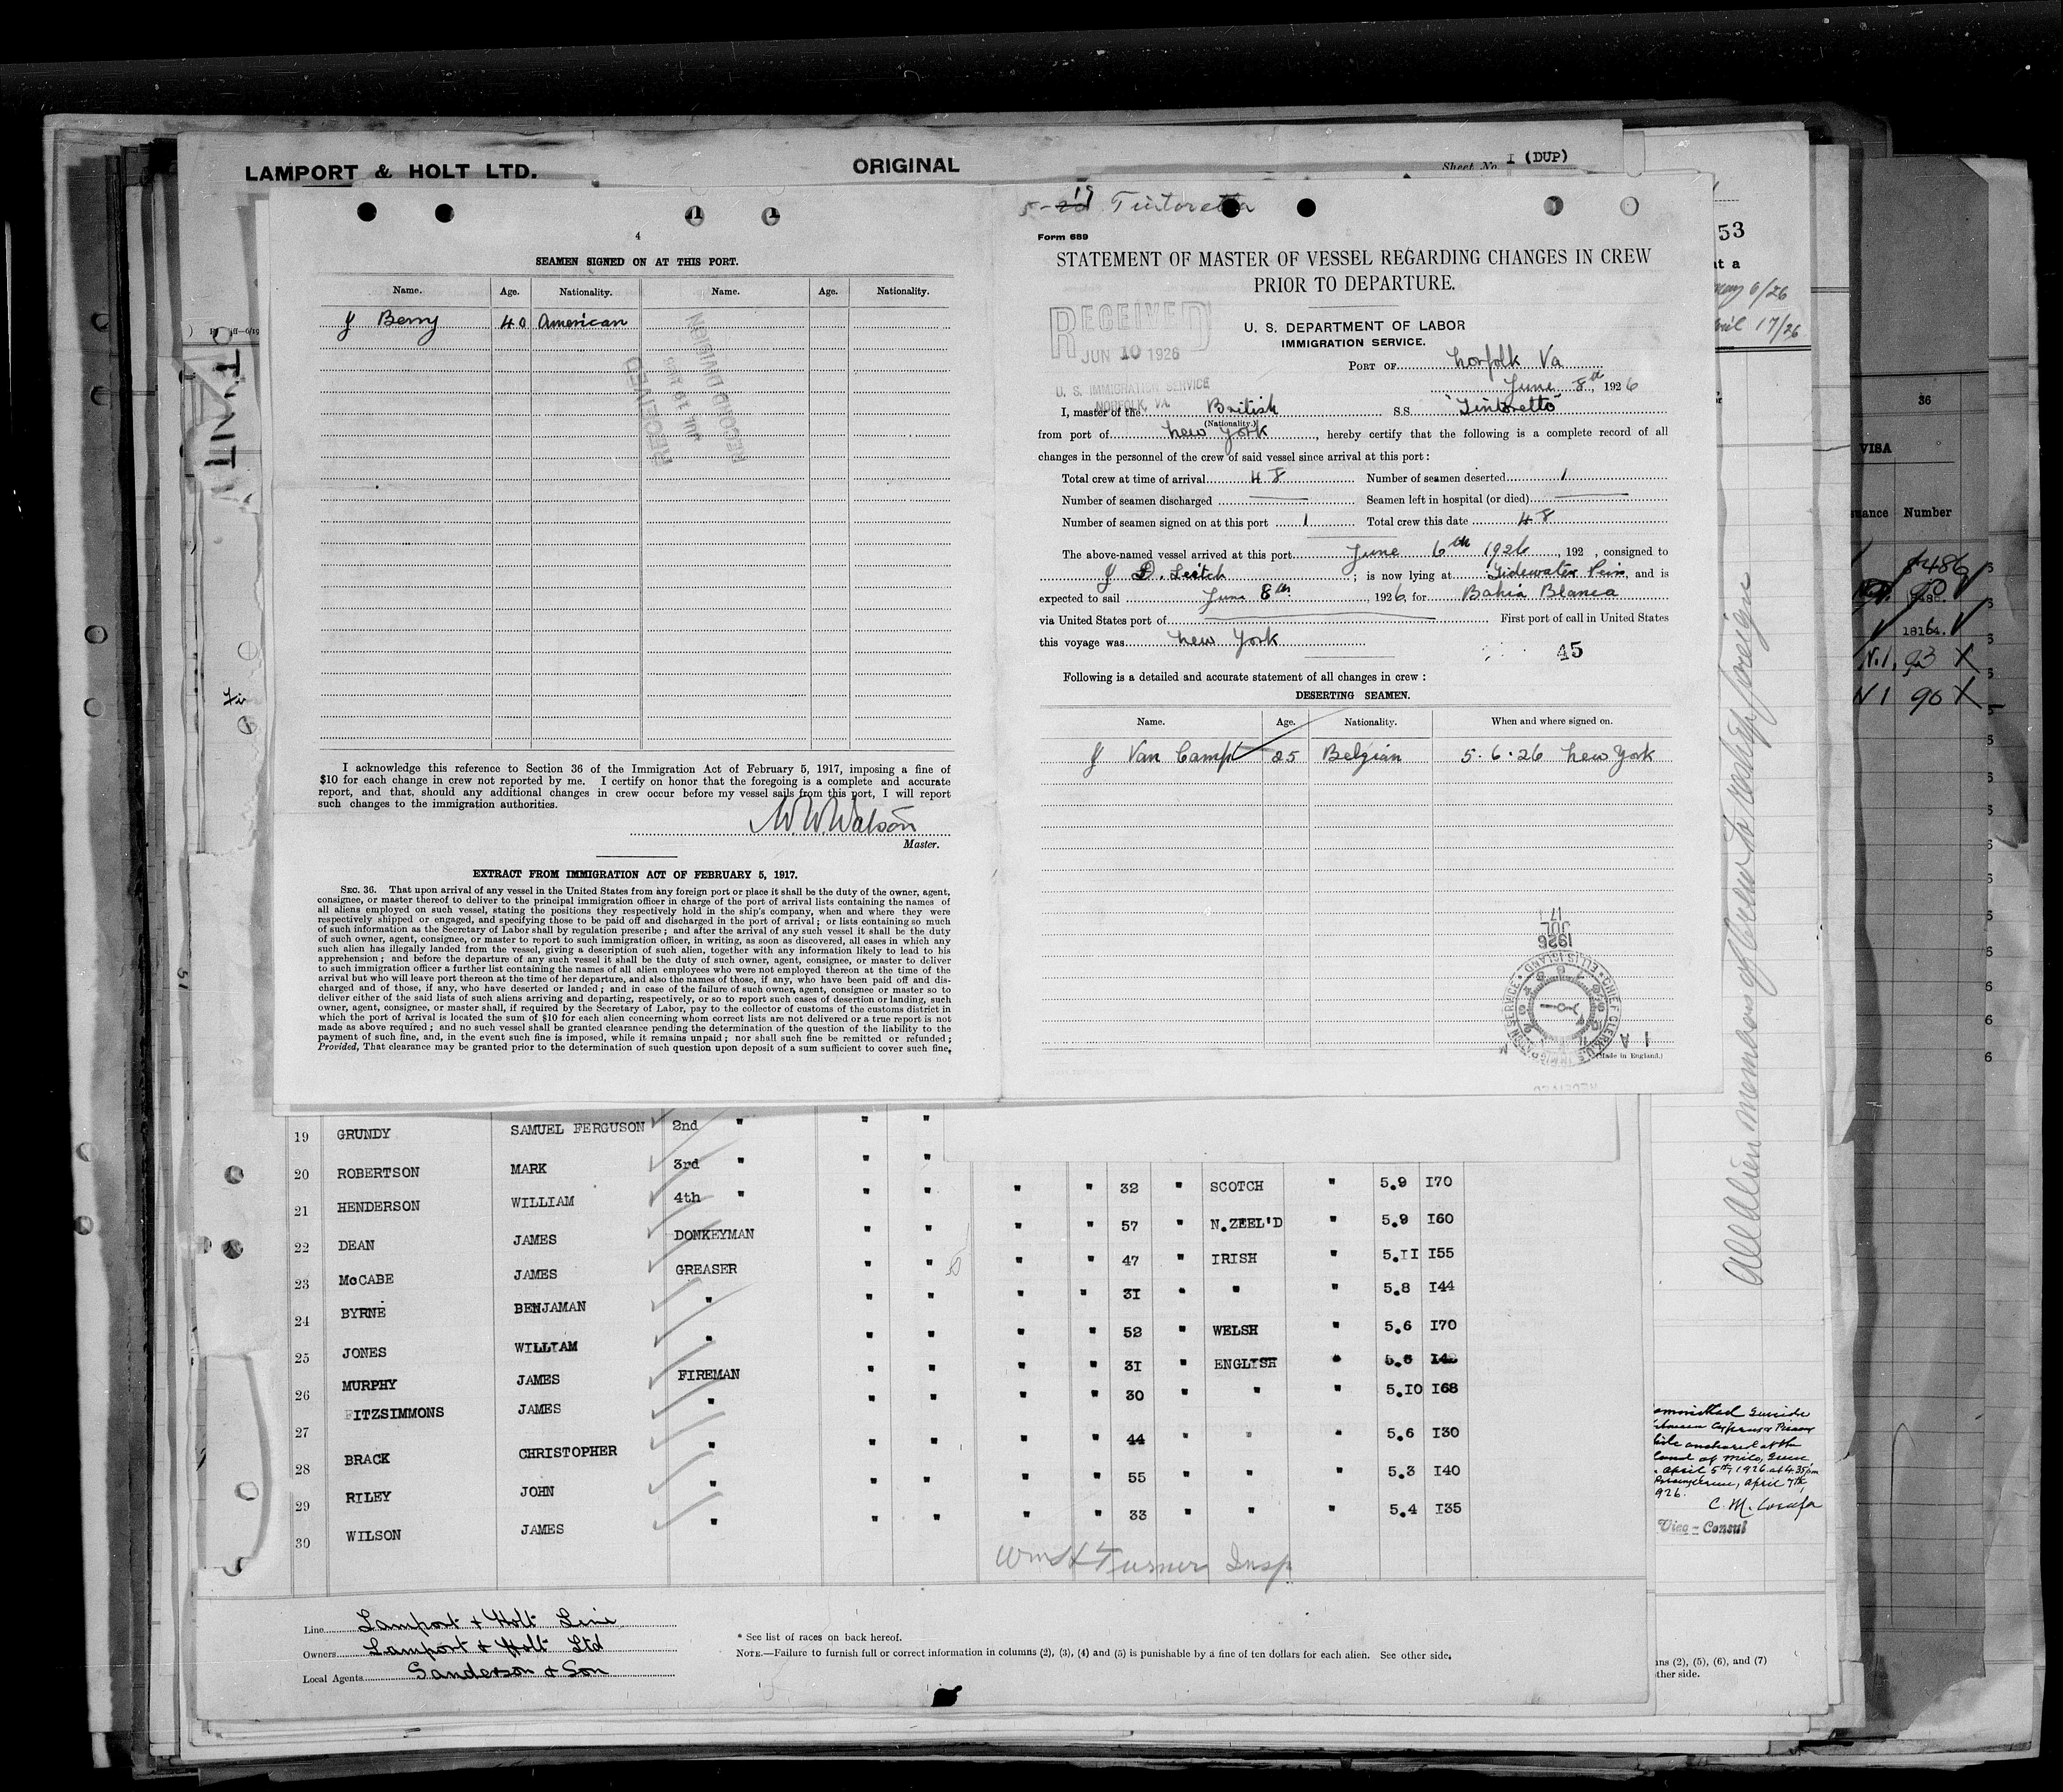 LAMPORT & HOLT LTD.
ORIGINAL
Sheet No. I (DUP)
4
SEAMEN SIGNED ON AT THIS PORT.
Name. Age. Nationality. Name. Age. Nationality.
J Berry 40 American
RECEIVED
JUL 19 1926
RECORD DIVISION
I acknowledge this reference to Section 36 of the Immigration Act of February 5, 1917, imposing a fine of
$10 for each change in crew not reported by me. I certify on honor that the foregoing is a complete and accurate
report, and that, should any additional changes in crew occur before my vessel sails from this port, I will report
such changes to the immigration authorities.
W W Watson
Master.
EXTRACT FROM IMMIGRATION ACT OF FEBRUARY 5, 1917.
SEC. 36. That upon arrival of any vessel in the United States from any foreign port or place it shall be the duty of the owner, agent,
consignee, or master thereof to deliver to the principal immigration officer in charge of the port of arrival lists containing the names of
all aliens employed on such vessel, stating the positions they respectively hold in the ship's company, when and where they were
respectively shipped or engaged, and specifying those to be paid off and discharged in the port of arrival; or lists containing so much
of such information as the Secretary of Labor shall by regulation prescribe; and after the arrival of any such vessel it shall be the duty
of such owner, agent, consignee, or master to report to such immigration officer, in writing, as soon as discovered, all cases in which any
such alien has illegally landed from the vessel, giving a desciption of such alien, together with any information likely to lead to his
apprehension; and before the departure of any such vessel it shall be the duty of such owner, agent, consignee, or master to deliver
to such immigration officer a further list containing the names of all alien employees who were not employed thereon at the time of the
arrival but who will leave port thereon at the time of her departure, and also the names of those, if any, who have been paid off and dis-
charged and of those, if any, who have deserted or landed; and in case of the failure of such owner, agent, consignee or master so to
deliver either of the said lists of such aliens arriving and departing, respectively, or so to report such cases of desertion or landing, such
owner, agent, consignee, or master shall, if required by the Secretary of Labor, pay to the collector of customs of the customs district in
which the port of arrival is located the sum of $10 for each alien concerning whom correct lists are not delivered or a true report is not
made as above required; and no such vessel shall be granted clearance pending the determination of the question of the liability to the
payment of such fine, and, in the event such fine is imposed, while it remains unpaid; nor shall such fine be remitted or refunded;
Provided, That clearance may be granted prior to the determination of such question upon deposit of a sum sufficient to cover such fine,
5-19 Tintoretta
Form 689
STATEMENT OF MASTER OF VESSEL REGARDING CHANGES IN CREW
PRIOR TO DEPARTURE.
RECEIVED
JUN 10 1926
U. S. IMMIGRATION SERVICE
NORFOLK, VA.
U. S. DEPARTMENT OF LABOR
IMMIGRATION SERVICE.
PORT OF Norfolk Va
June 8th, 1926
I, master of the British S.S. "Tintoretto"
(Nationality.)
from port of New York, hereby certify that the following is a complete record of all
changes in the personnel of the crew of said vessel since arrival at this port:
Total crew at time of arrival 48 Number of seamen deserted 1
Number of seamen discharged Seamen left in hospital (or died)
Number of seamen signed on at this port 1 Total crew this date 48
The above-named vessel arrived at this port June 6th 1926, 192 , consigned to
J D. Leitch; is now lying at Tidewater Pier, and is
expected to sail June 8th, 1926, for Bahia Blanca
via United States port of First port of call in United States
this voyage was New York
45
Following is a detailed and accurate statement of all changes in crew:
DESERTING SEAMEN.
Name. Age. Nationality. When and where signed on.
J Van Camp 25 Belgian 5.6.26 New York
1926
JUL
17
CHIEF CLERK U.S. IMMIGRATION SERVICE ELLIS ISLAND
(Made in England.)
19 GRUNDY SAMUEL FERGUSON 2nd " " "
20 ROBERTSON MARK 3rd " " "
21 HENDERSON WILLIAM 4th " " " " " 32 " SCOTCH " 5.9 I70
22 DEAN JAMES DONKEYMAN " " " " 57 " N.ZEEL'D " 5.9 I60
23 McCABE JAMES GREASER " " " " 47 " IRISH " 5.II I55
24 BYRNE BENJAMAN " " " " " 3I " " " 5.8 I44
25 JONES WILLIAM " " " " " 52 " WELSH " 5.6 I70
26 MURPHY JAMES FIREMAN " " " " 3I " ENGLISH " 5.6
27 FITZSIMMONS JAMES " " " " " 30 " " " 5.IO I68
28 BRACK CHRISTOPHER " " " " " 44 " " " 5.6 I30
29 RILEY JOHN " " " " " 55 " " " 5.3 I40
30 WILSON JAMES " " " " " 33 " " " 5.4 I35
Wm H Turner Insp
Line Lamport & Holt Line
Owners Lamport & Holt Ltd
Local Agents Sanderson & Son
* See list of races on back hereof.
NOTE.—Failure to furnish full or correct information in columns (2), (3), (4) and (5) is punishable by a fine of ten dollars for each alien. See other side.
53
at a
May 6/26
April 17/26
All alien members of crew to reship foreign
April 5th, 1926 at 4.35pm
April 7th,
926.
Vice-Consul
ns (2), (5), (6), and (7)
ther side.
36
VISA
uance Number
8486
18164.
N.1. 93 X
N 1 90 X